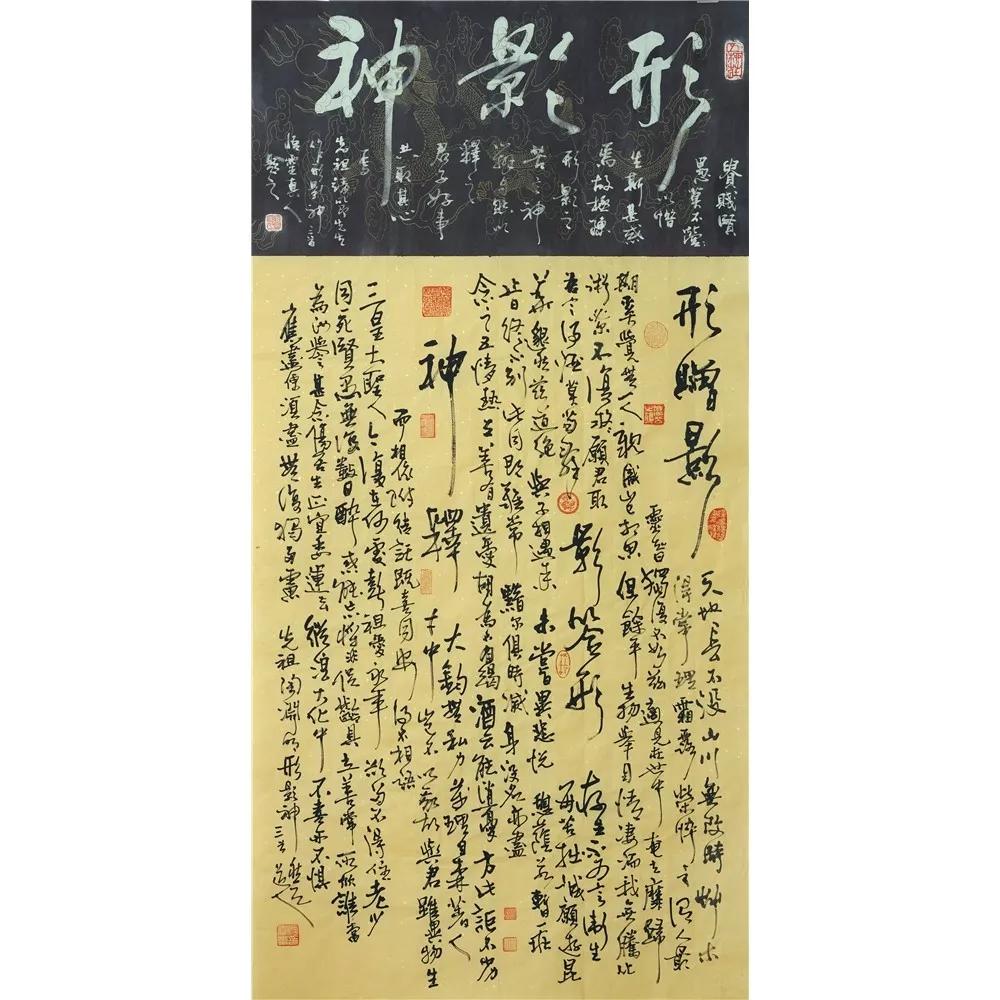 形影神
貴賤賢
愚莫不營營
以惜
生斯甚惑
焉故極陳
形影之
苦言神
辨自然以
釋之
君子好事
共取其心
焉
先祖靖節先生
作形影神三首
悟靈真人
形贈影
天地長不沒山川無改時草木
得常理霜露榮悴之謂人最
靈智獨復不如茲適見在世中奄去靡歸
期奚覺無一人親識豈相思但餘平生物舉目情悽洏我無騰化
術必不復疑願君取
吾言得酒莫苟辭
影答形
存生不可言衛生
每苦拙誠願遊昆
華邈然茲道絕與子相遇來未嘗異悲悅憩蔭若暫乖
止日終不別此同既難常黯爾俱時滅身沒名亦盡
念之五情熱立善有遺愛胡為不自竭酒云能消憂方此詎不劣
神釋
大鈞無私力萬理自森著人
才中豈不以我故與君雖異物生
而相依附結託既喜同安得不相語
三皇大聖人今復在何處彭祖愛永年欲留不得住老少
同死賢愚無復數日醉或能忘將非促齡具立善常所欣誰當
為汝譽甚念傷吾生正宜委運去縱浪大化中不喜亦不懼
應盡便須盡無復獨多慮先祖陶淵明形影神三首